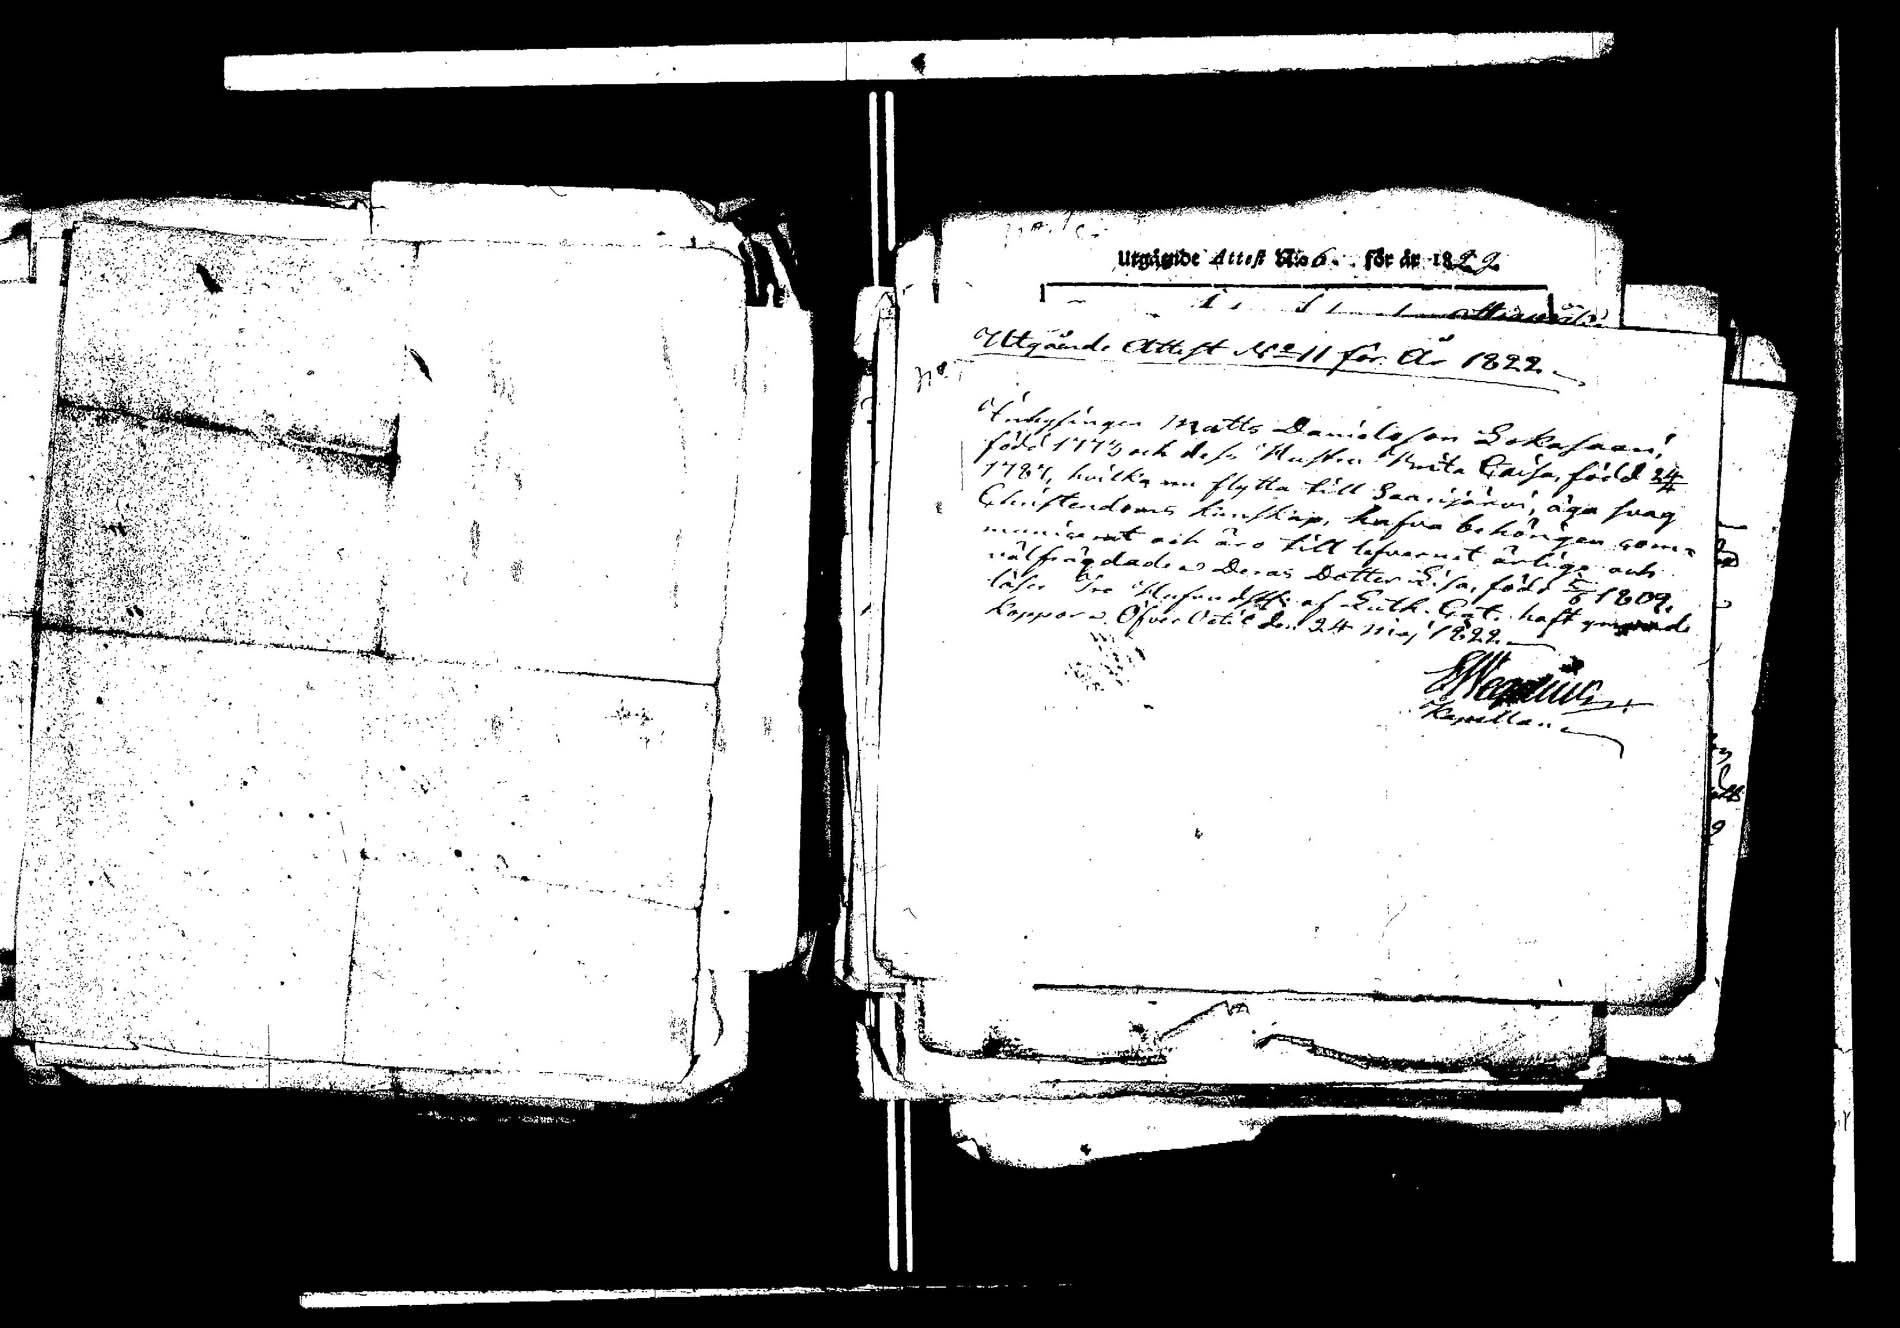 Utgående Attest No 6. för år 1829.
Utgående Attest No 11 för År 1822.
Inhysingen Matts Danielsson
född 1773 och dess Hustru Brita Caisa, född 24/4
1787, hvilka nu flytta till Saarijärvi, äga svag
Christendoms kunskap, hafva behörigen com-
municerat och äro till lefvernet ärlige och
välfrägdade. Deras Dotter Lisa, född 1809,
läser Tre Hufvudst. af Luth. Cat. haft
koppor. Öfver den 24 Maj 1822.
Kapellan.